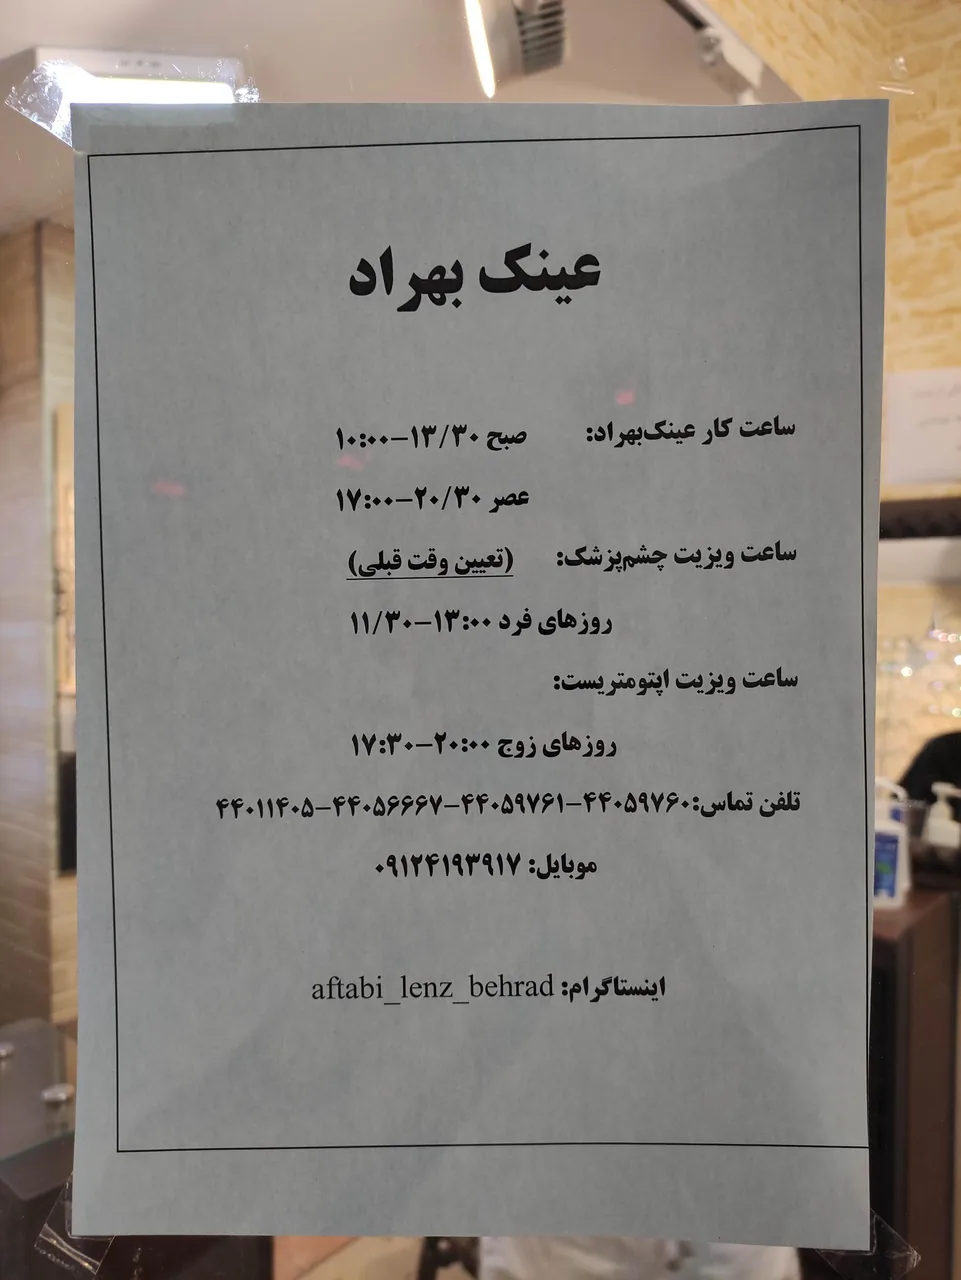 عینک بهراد
ساعت کار عینک‌بهراد: صبح ۱۰:۰۰-۱۳/۳۰
عصر ۱۷:۰۰-۲۰/۳۰
ساعت ویزیت چشم‌پزشک: (تعیین وقت قبلی)
روزهای فرد ۱۱/۳۰-۱۳:۰۰
ساعت ویزیت اپتومتریست:
روزهای زوج ۱۷:۳۰-۲۰:۰۰
تلفن تماس:۴۴۰۵۹۷۶۰-۴۴۰۵۹۷۶۱-۴۴۰۵۶۶۶۷-۴۴۰۱۱۴۰۵
موبایل: ۰۹۱۲۴۱۹۳۹۱۷
اینستاگرام: aftabi_lenz_behrad